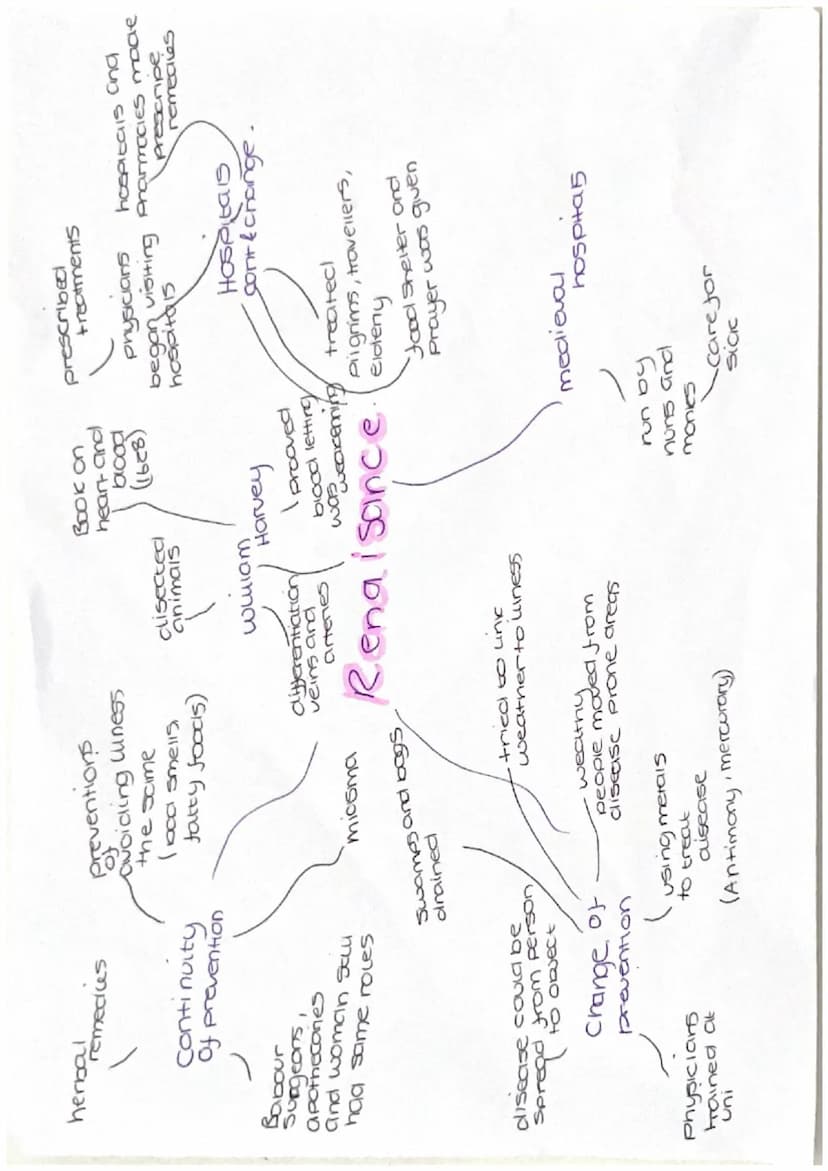 Renaisance.
Continuity
of prevention
herbal
remedies
preventions
of
avoiding illness
the same
(bad smells,
fatty foods)
miasma
Babour
surgeons,
apothecaries
and woman still
had same roles
William
Harvey
disected
animals
Book on
heart and
blood
(1628)
differentiation
veins and
arteries
prooved
blood letting
was weakening
Hospitals
cont & change.
prescribed
treatments
physicians
began visiting
hospitals
hospitals and
pharmacies made
prescripe
remedies
treated
pilgrims, travellers,
elderly
food shelter and
prayer was given
medieval
hospitals
run by
nuns and
monks
care for
sick
Change of
prevention
swamps and bogs
drained
tried to link
weather to illness
wealthy
people moved from
disease prone areas
using metals
to treat
disease
(Antimony, mercurary)
disease could be
spread from person
to object
physicians
trained at
uni